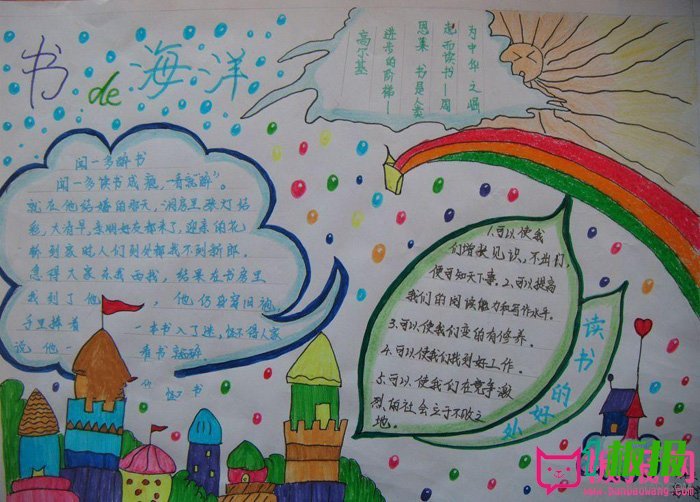 书de海洋
为中华之崛
起而读书—周
恩来 书是人类
进步的阶梯—
高尔基
闻一多醉书
闻一多读书成瘾，一看就“醉”。
就在他结婚的那天，洞房里张灯结
彩，大有早，亲朋好友都来了，迎亲的花
轿到家时人们到处都找不到新郎。
急得大家东找西找，结果在书房里
找到了他 ， 他仍穿旧袍，
手里捧着 一本书入了迷，怪不得人家
说他 看书就醉
1.可以使我
们增长见识，不出门，
便可知天下事。2.可以提高
我们的阅读能力和写作水平。
3.可以使我们变的有修养。
4.可以使我们找到好工作。
5.可以使我们在竞争激
烈的社会立于不败之
地。
读书的好处
www.banbaowang.com